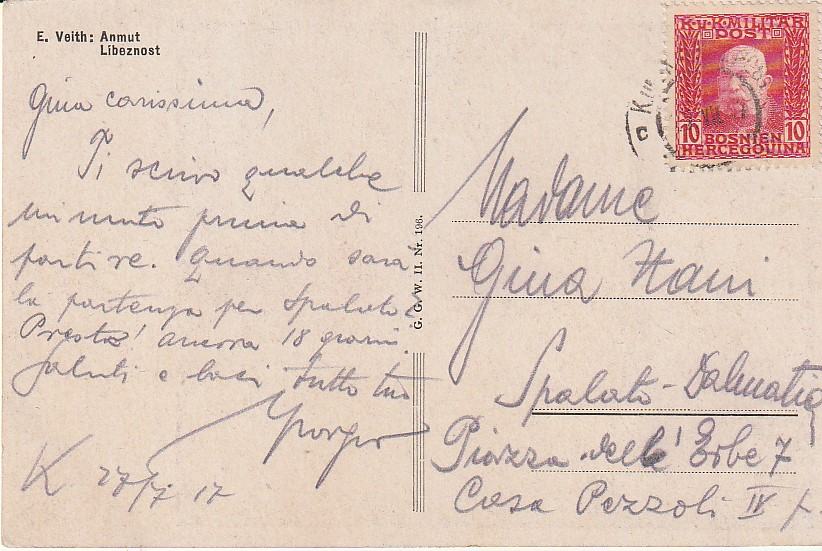 E. Veith: Anmut
Líbeznost
Gina carissima,
Ti scrivo qualche
minuto prima di
partire. Quando sarà
la partenza per Spalato?
Presto! ancora 18 giorni.
Saluti e baci tutto tuo
Giorgio
K. 27/7 17
G. G. W. II. Nr. 196.
K.u.K. MILITÄR
POST
10 10
BOSNIEN
HERCEGOVINA
Madame
Gina
Spalato-Dalmatia
Piazza delle Erbe 7
Casa Pezzoli IV p.